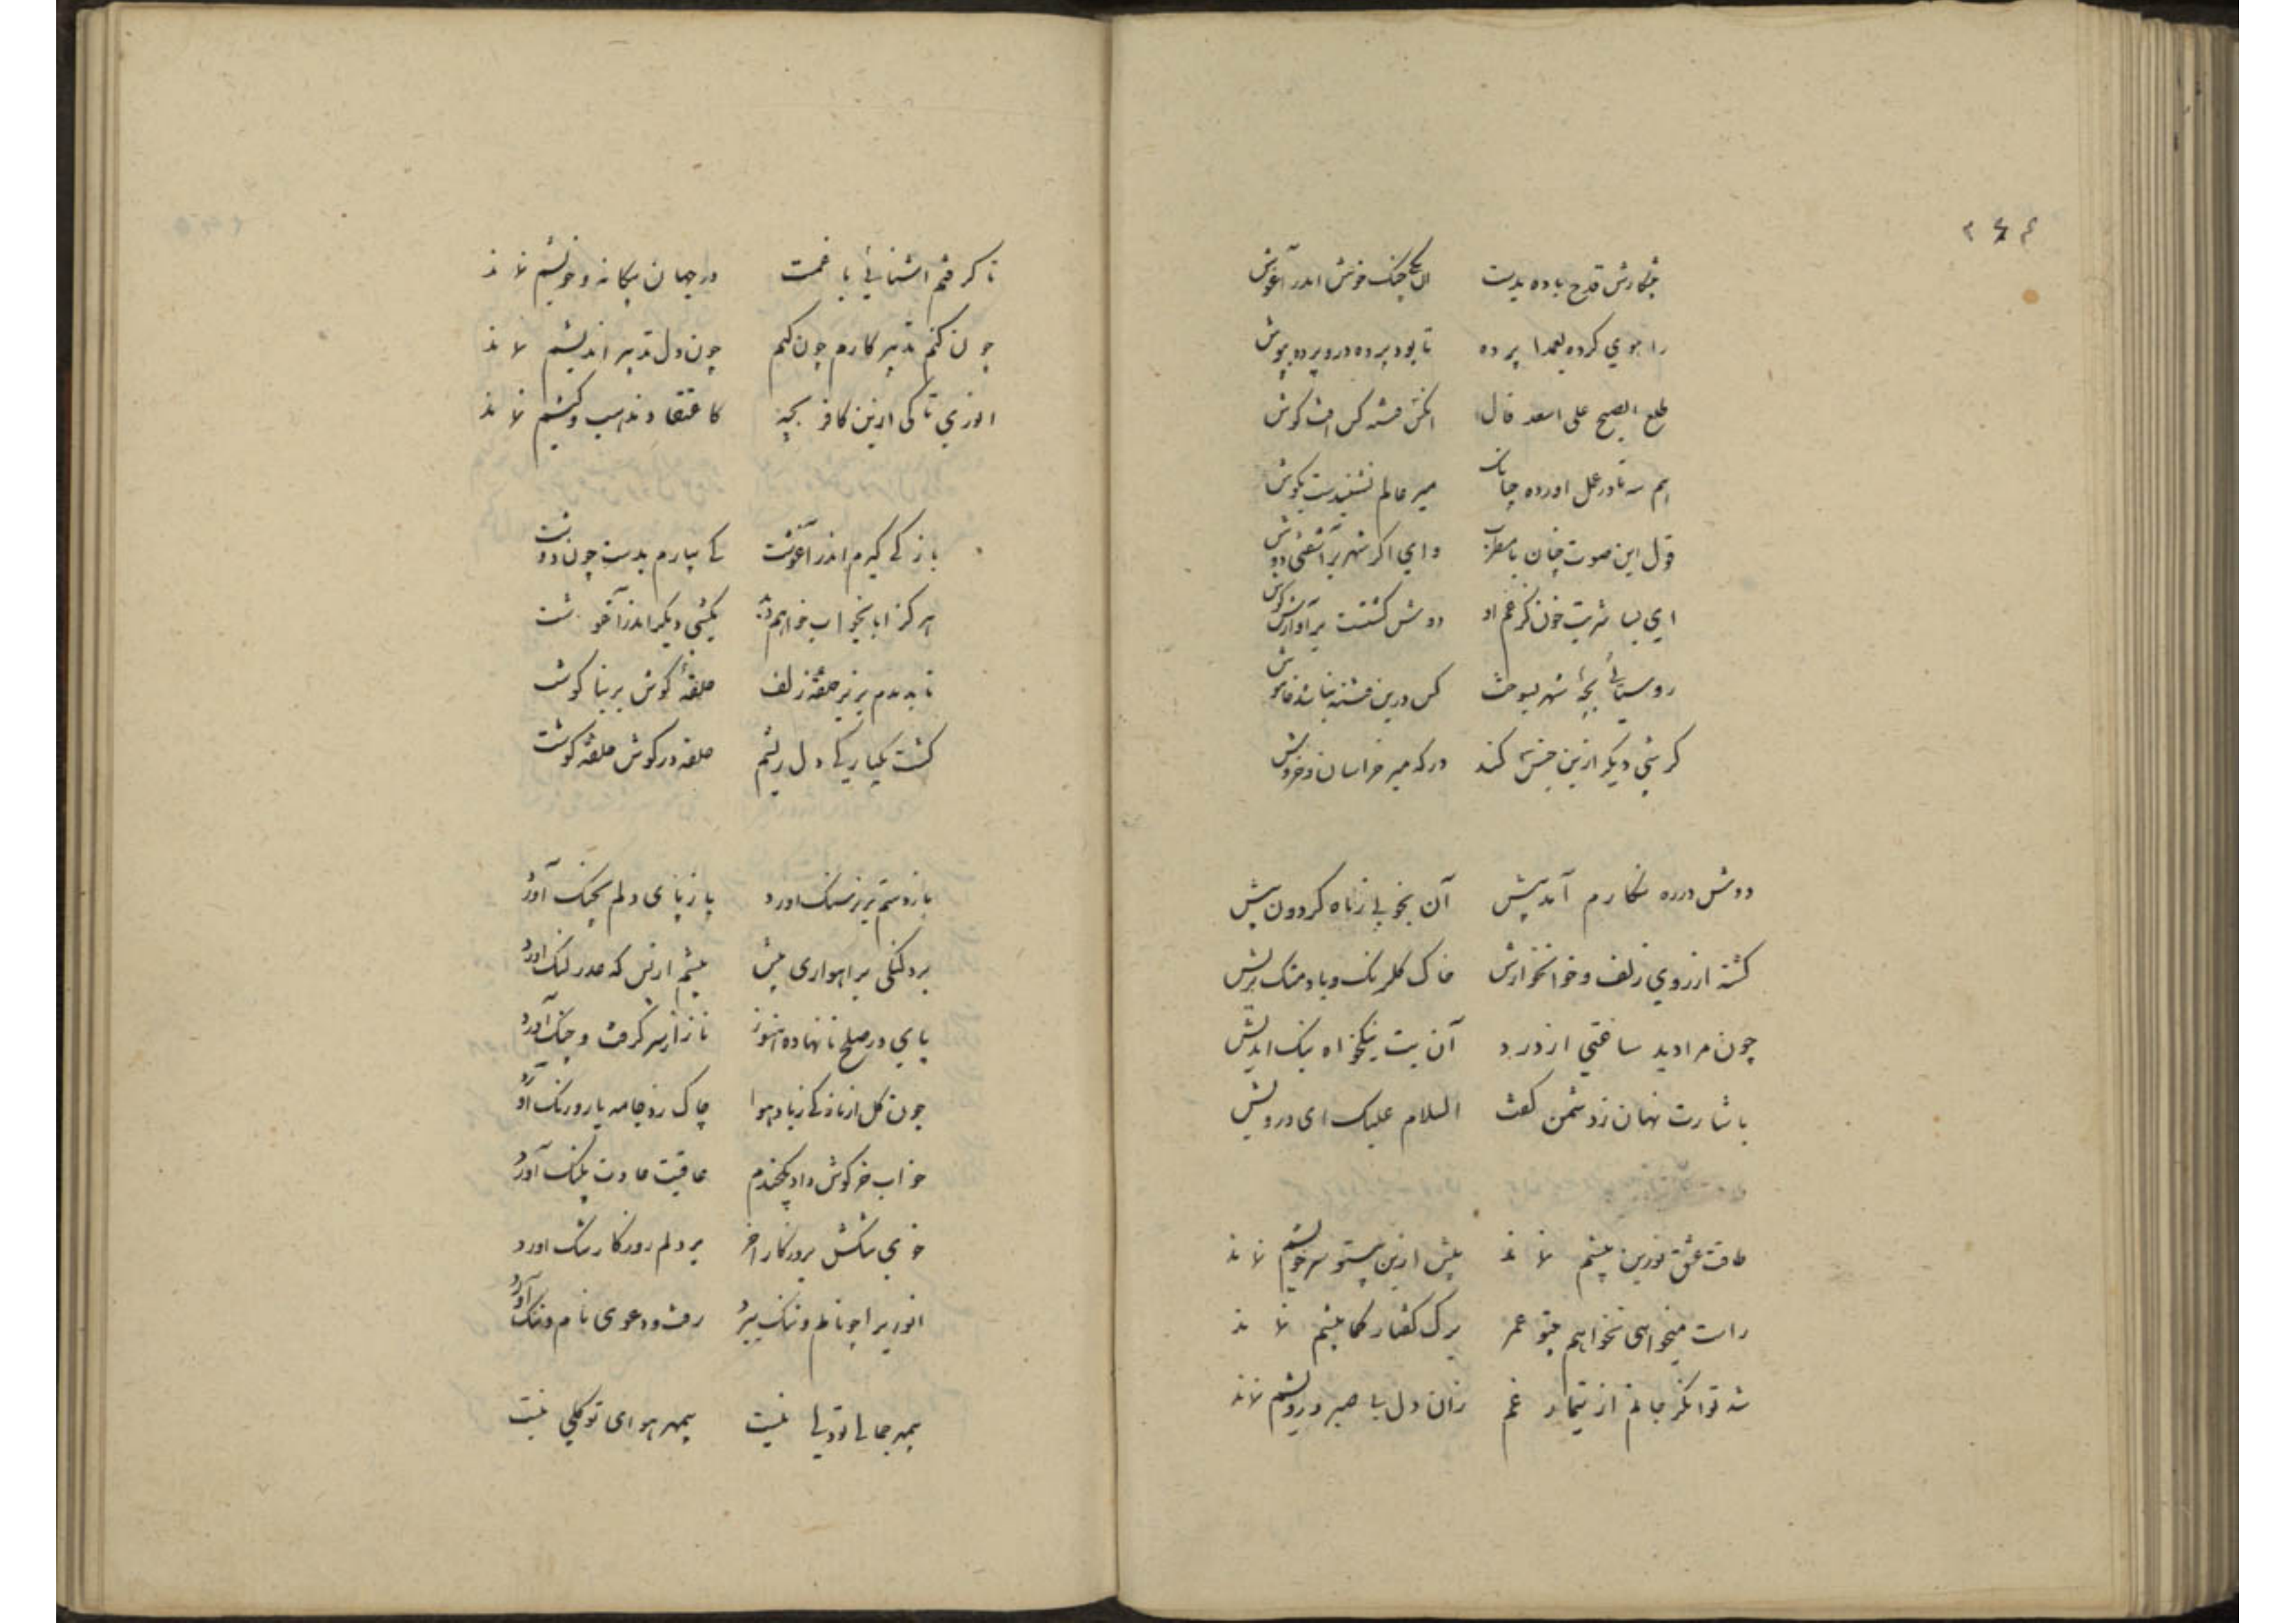 قدح باده بدست چنک خوش اندر آغوش
کرده بعمدا پرده تا بود پرده در و پرده پوش
طلع الصبح علی اسعد فال
میر عالم نشنیدست بکوش
قول این صوت چنان وای اگر شهر برآشفتی دوش
ای بسا شربت خون کز غم او دوش کشتست
روستائی بچهٔ شهر بسوخت کس درین فتنه نباشد خاموش
کر شبی دیگر ازین جنس کند در که میر خراسان و خروش
دوش در ره نکارم آمد پیش آن بخوبی ز ماه کردون پیش
کشته از روی زلف و خاک کلرنک و باد مشک پریش
چون مرا دید ساعتی از دور آن بت نیکخواه نیک اندیش
باشارت نهان ز دشمن کفت السلام علیک ای درویش
طاقت عشق تو زین پیشم نماند پیش ازین بیتو سر خویشم نماند
راست میخواهی نخواهم بیتو عمر برک کفتار کما بیشم نماند
شد توانکر جانم از تیمار غم زان دل با صبر درویشم نماند
تا کرفتم آشنائی با غمت در جهان بیکانه و خویشم نماند
چون کنم تدبیر کارم چون کنم چون دل تدبیر اندیشم نماند
انوری تا کی ازین کافر بچه کاعتقاد و مذهب و کیشم نماند
باز کی کیرم اندر آغوشت کی بیارم بدست چون دوشت
هر کز آیا بخواب خواهم دید یکشبی دیکر اندر آغوشت
تا بدیدم بزیر حلقه زلف حلقهٔ کوش بر بناکوشت
کشت یکباریکی دل ریشم حلقه در کوش حلقهٔ کوشت
باز دستم بزیر سنک آورد باز پای دلم بچنک آورد
برد لنکی براهواری پیش پیشم از بس که عذر لنک آورد
پای در صلح نانهاده هنوز ناز از سر کرفت و جنک آورد
چون کل از ناز کی ز باد هوا چاک زد جامه باز و رنک آورد
خواب خرکوش داد یکچندم عاقبت عادت پلنک آورد
خوی تنکش بروزکار آخر بر دلم روزکار تنک آورد
انوری را چو نام و ننک ببرد رفت و دعوی نام و ننک آورد
بیمهر جمال تو دلی نیست بیمهر هوای تو کلی نیست